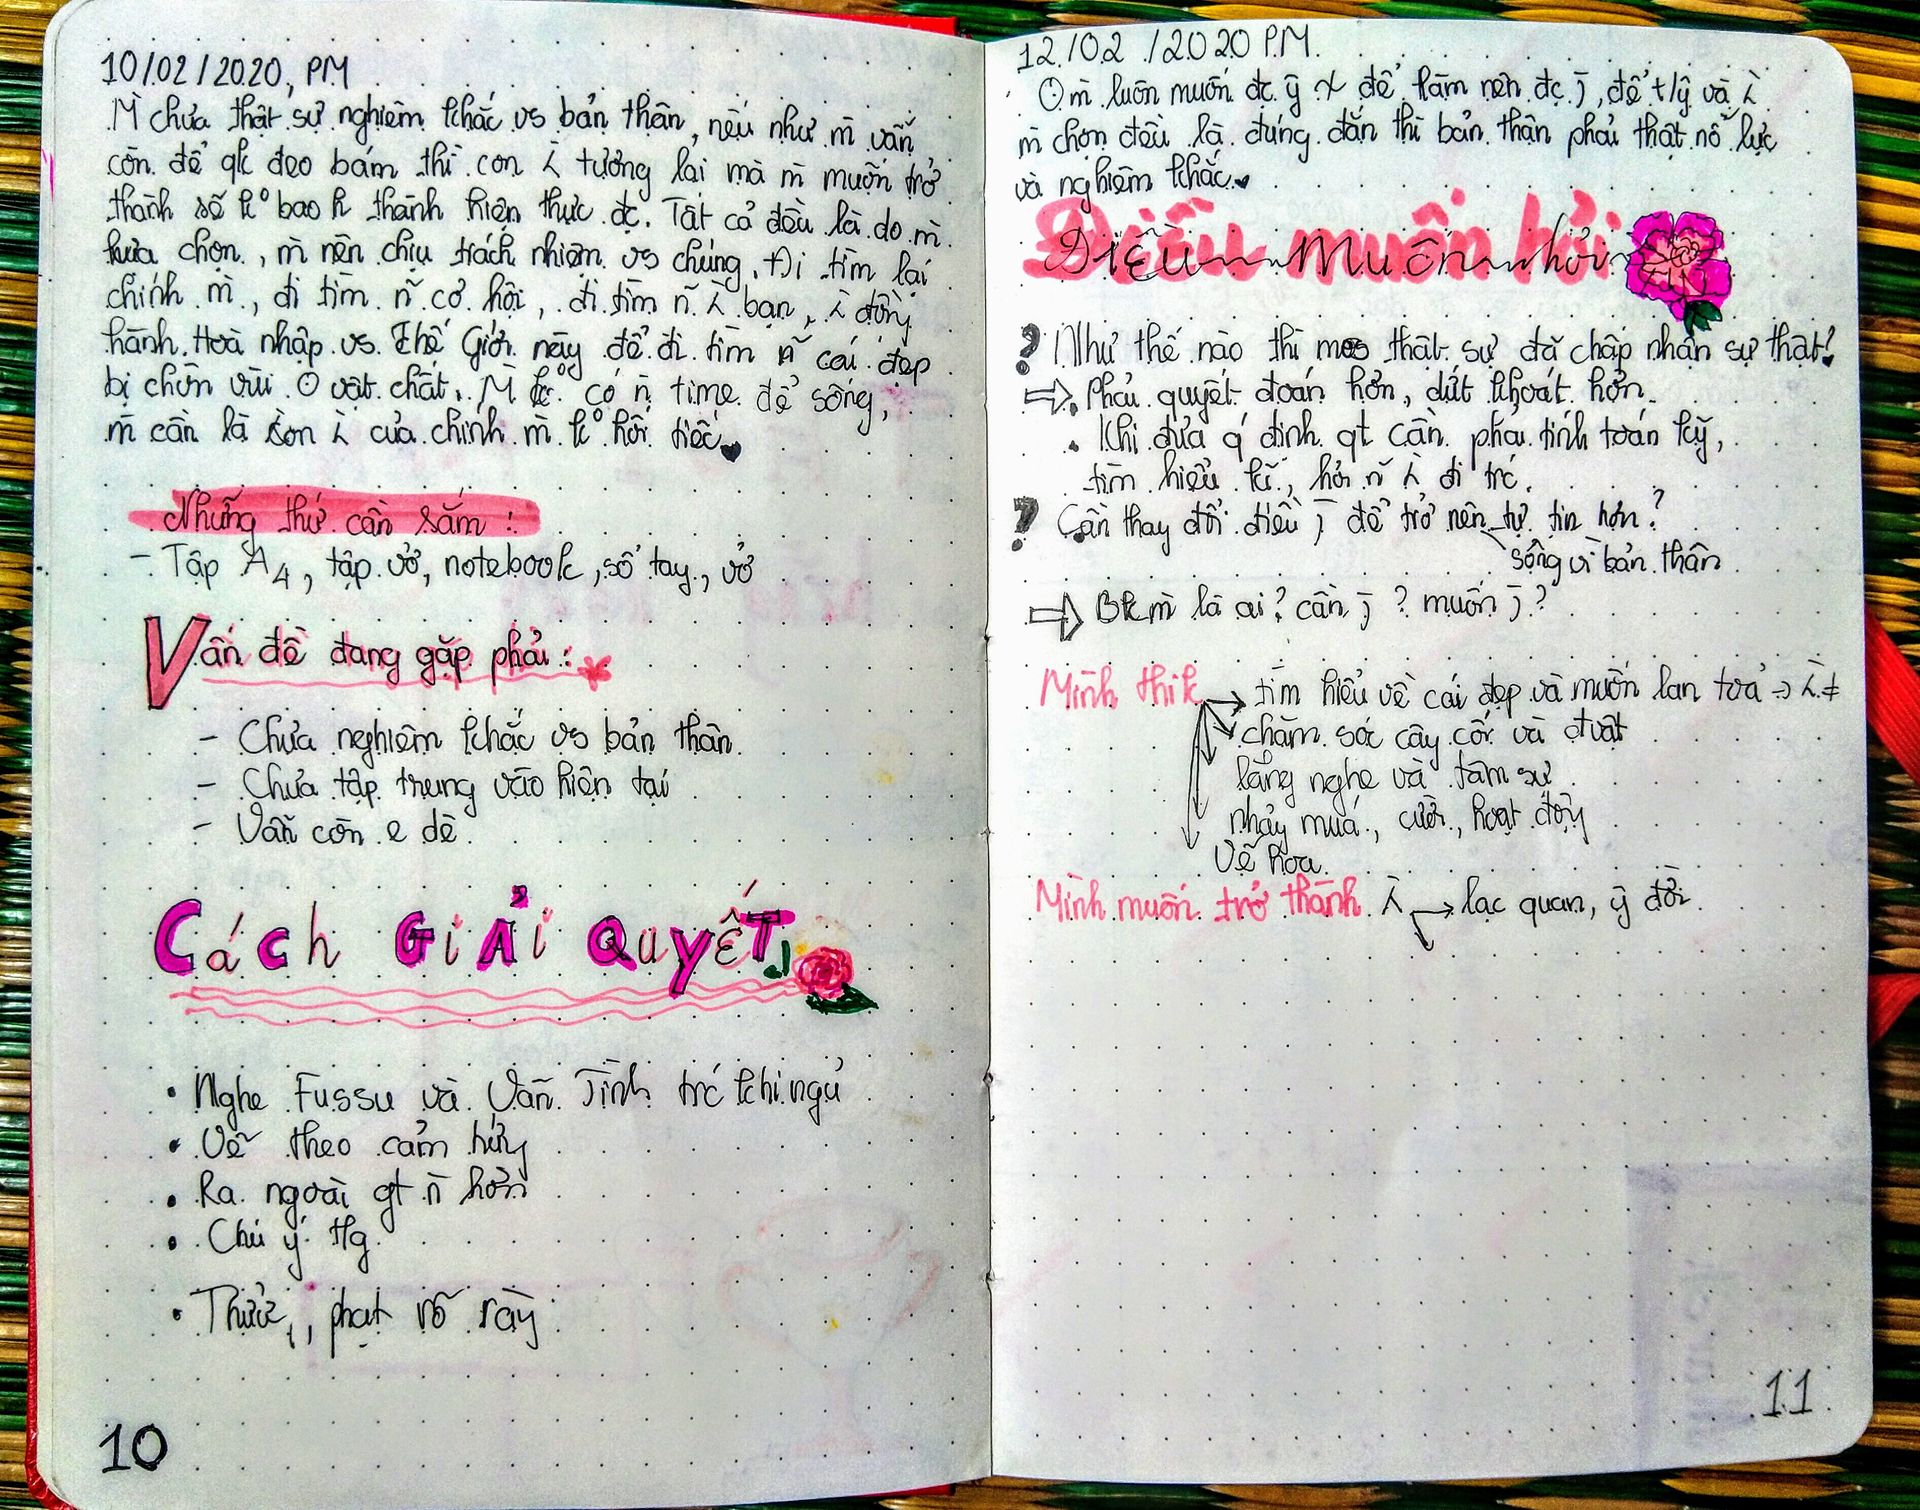 10/02/2020, PM
M̀ chưa thật sự nghiêm khắc vs bản thân, nếu như m̀ vẫn
còn để qk đeo bám thì con λ tương lai mà m̀ muốn trở
thành sẽ k° bao h thành hiện thực đc. Tất cả đều là do m̀
lựa chọn, m̀ nên chịu trách nhiệm vs chúng. Đi tìm lại
chính m̀, đi tìm ñ cơ hội, đi tìm ñ λ bạn, λ đồng
hành. Hoà nhập vs Thế Giới này để đi tìm ñ cái đẹp
bị chôn vùi ʘ vật chất. M̀ k° có ǹ time để sống,
m̀ cần là con λ của chính m̀ k° hối tiếc
Những thứ cần sắm:
- Tập A4, tập vở, notebook, sổ tay, vở
Vấn đề đang gặp phải:
- Chưa nghiêm khắc vs bản thân
- Chưa tập trung vào hiện tại
- Vẫn còn e dè
Cách Giải Quyết
• Nghe Fussu và Vãn Tình trc khi ngủ
• Vẽ theo cảm hứng
• Ra ngoài gt ǹ hơn
• Chú ý tg
• Thưở, phạt rõ ràng
10
12/02/2020 PM.
m̀ luôn muốn đc để làm nên đc j̀, để t/ý và λ
m̀ chọn đều là đúng đắn thì bản thân phải thật nỗ lực
và nghiêm khắc
Điều muốn hỏi
Điều Muốn hỏi
? Như thế nào thì mos thật sự đã chấp nhận sự thật!
⇒ . Phải quyết đoán hơn, dứt khoát hơn
. Khi đưa q' định gt cần phải tính toán kỹ,
tìm hiểu kĩ, hỏi ñ λ đi trc.
? Cần thay đổi điều j̀ để trở nên tự tin hơn?
sống vì bản thân
⇒ Bk m̀ là ai? cần j̀? muốn j̀?
Mình thik → tìm hiểu về cái đẹp và muốn lan toả → λ ≠
chăm sóc cây cối và đ vật
lắng nghe và tâm sự
nhảy múa, cười, hoạt động
Vẽ hoa
Mình muốn trở thành λ → lạc quan, yêu đời
11